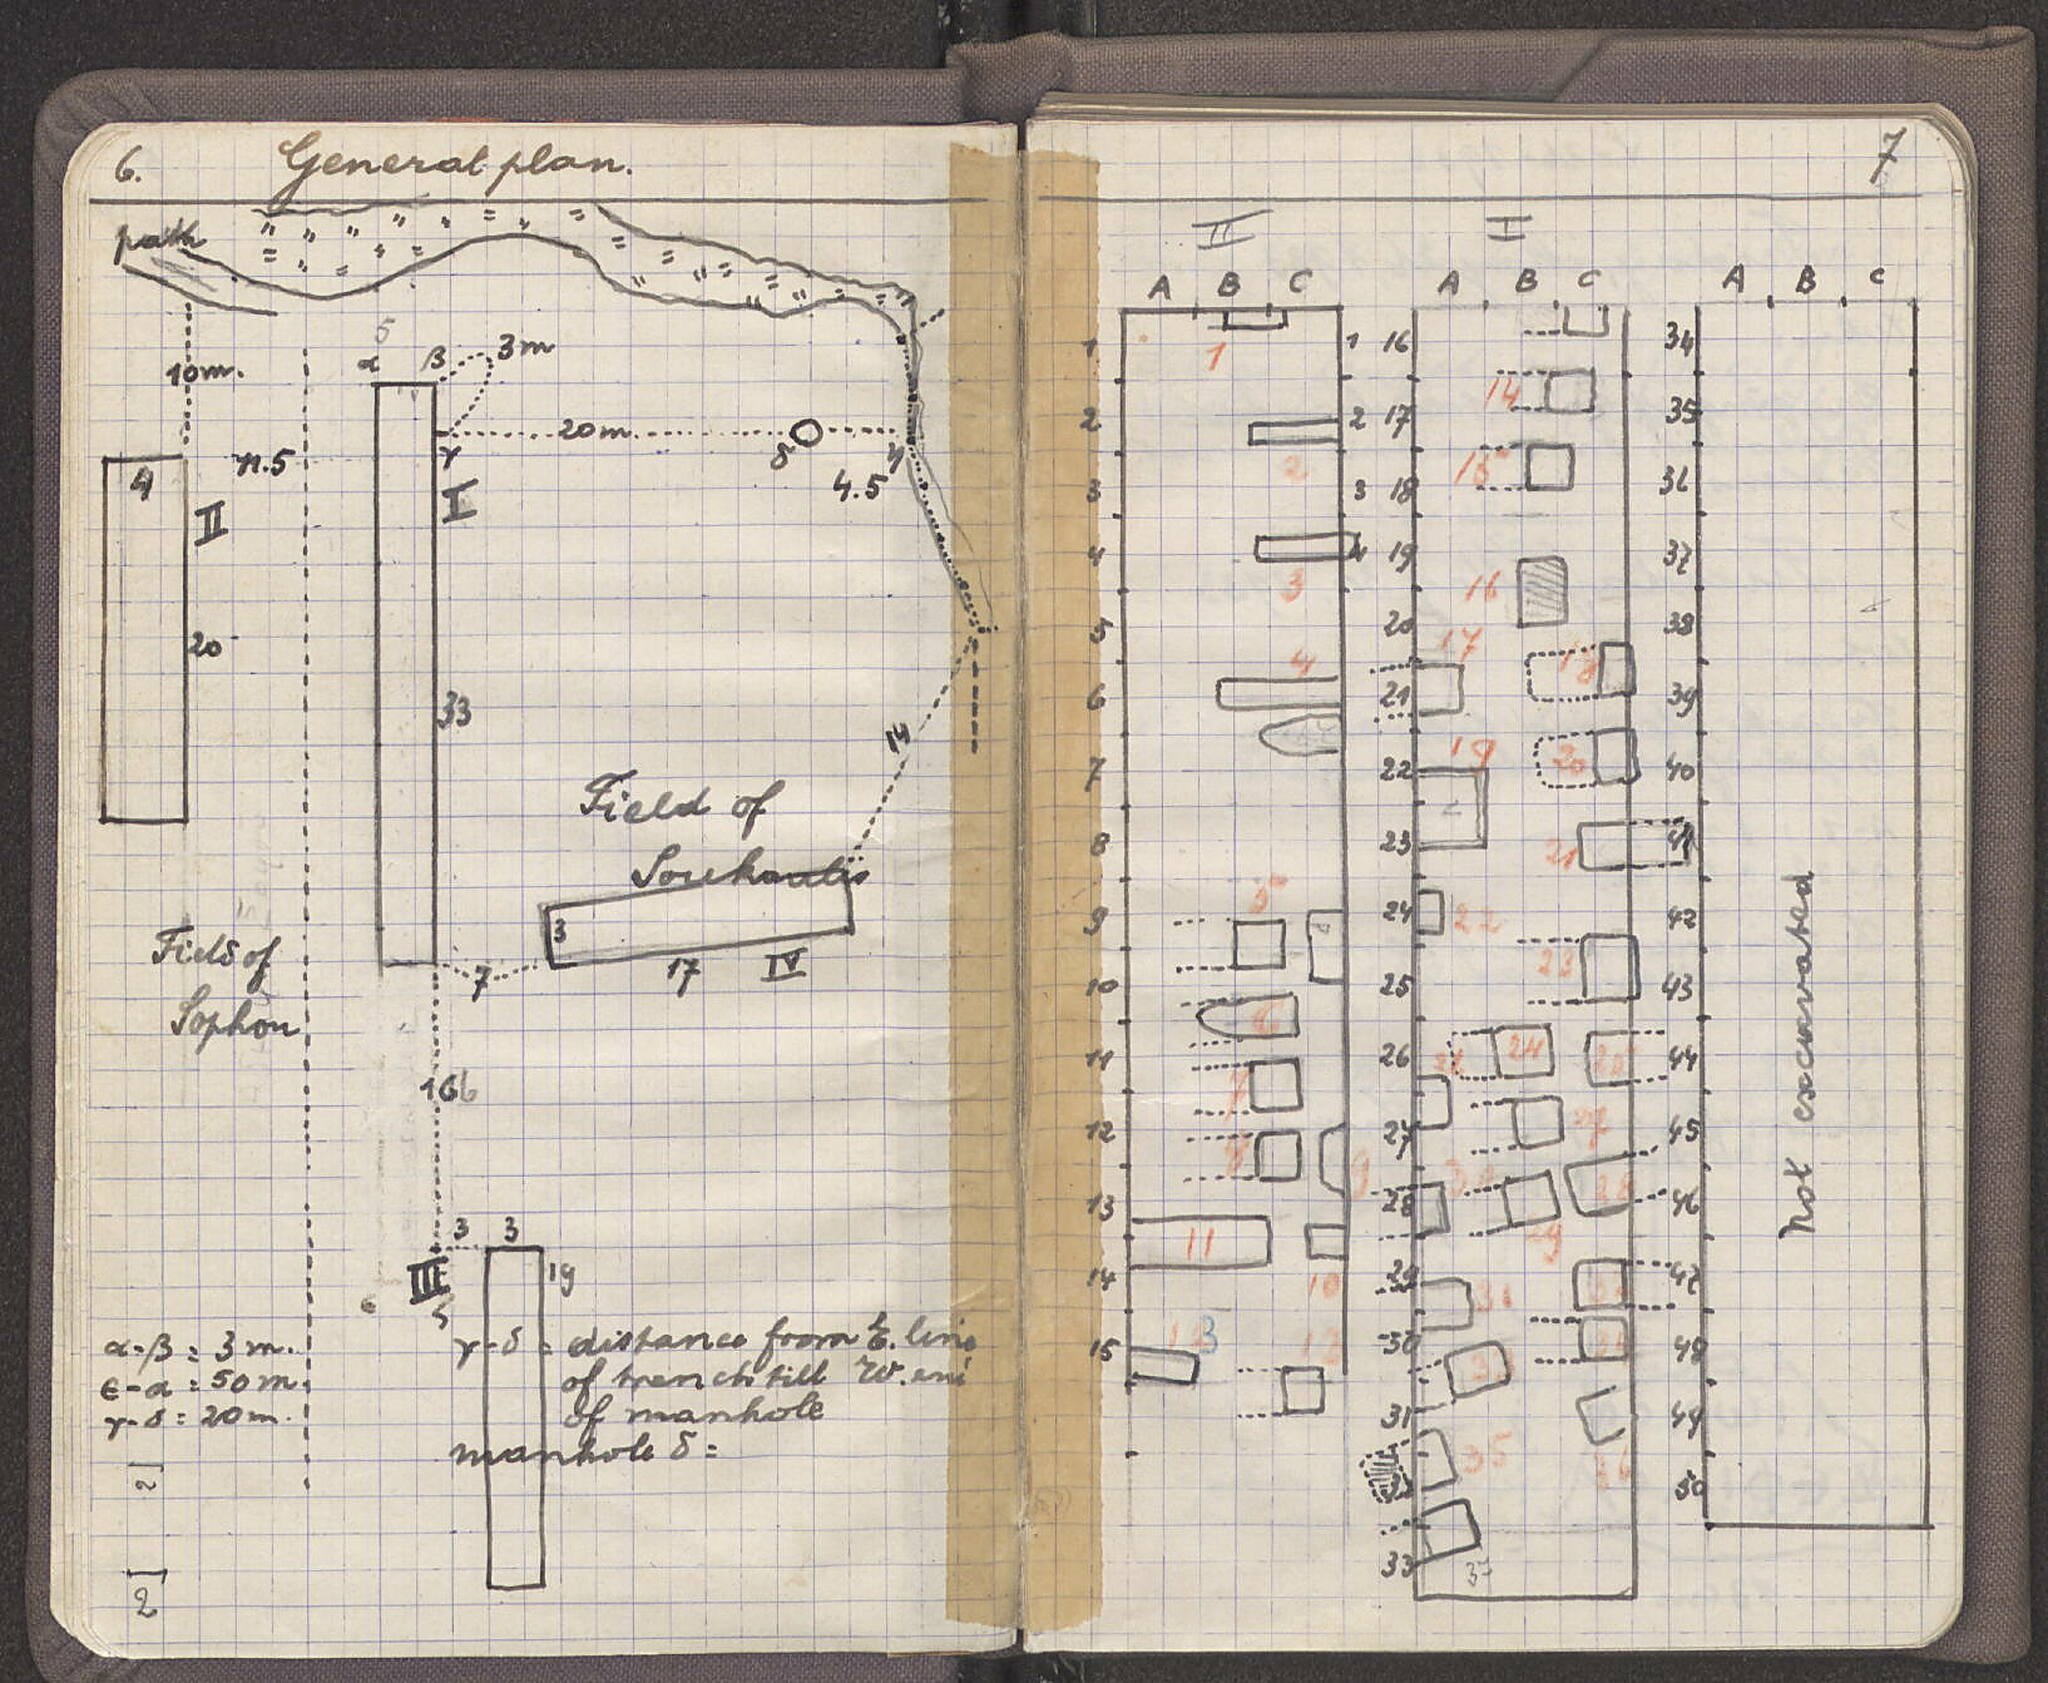 6. General plan.
path
10m.
5
α β 3m
20m.
γ δ η
4.5
n.5
4
II
I
20
33
14
Field of
Soukoutis
3
7 17 IV
Field of
Sophon
166
3 3
III 19
ε 5
α-β = 3 m.
ε-α = 50 m.
γ-δ = 20 m.
γ-δ = distance from E. line
of trench till W. end
of manhole
manhole δ =
2
2
7
II I
A B C A B C A B C
1 1 1 16 34
2 2 17 14 35
2
3 3 18 15 36
4 4 19 37
3 16
5 20 17 38
4
6 21 18 39
7 22 19 20 40
8 23 21 41
9 5 24 22 42
10 25 23 43
6
11 7 26 24 25 44
12 8 9 27 27 45
13 28 28 46
11 29
14 10 29 31 47
15 3 30 48
31 49
35
50
33 37
not excavated